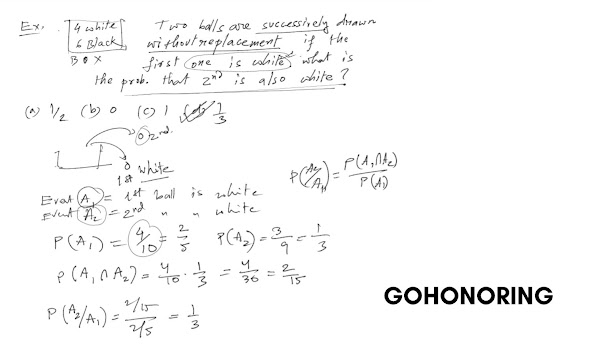 Ex.
4 white
6 Black
BOX
Two balls are successively drawn
without replacement if the
first one is white, what is
the prob. that 2nd is also white?
(a) 1/2 (b) 0 (c) 1 (d) 1/3
0 2nd.
0
1st white
Event A1 = 1st ball is white
Event A2 = 2nd " " white
P(A2/A1) = P(A1∩A2)/P(A1)
P(A1) = 4/10 = 2/5 P(A2) = 3/9 = 1/3
P(A1∩A2) = 4/10 · 1/3 = 4/30 = 2/15
P(A2/A1) = 2/15 / 2/5 = 1/3
GOHONORING